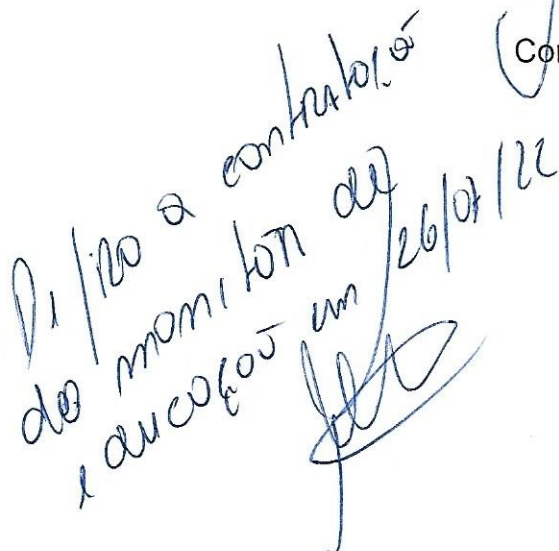 Defiro a contratação
do monitor de
educação em 26/07/22
Con